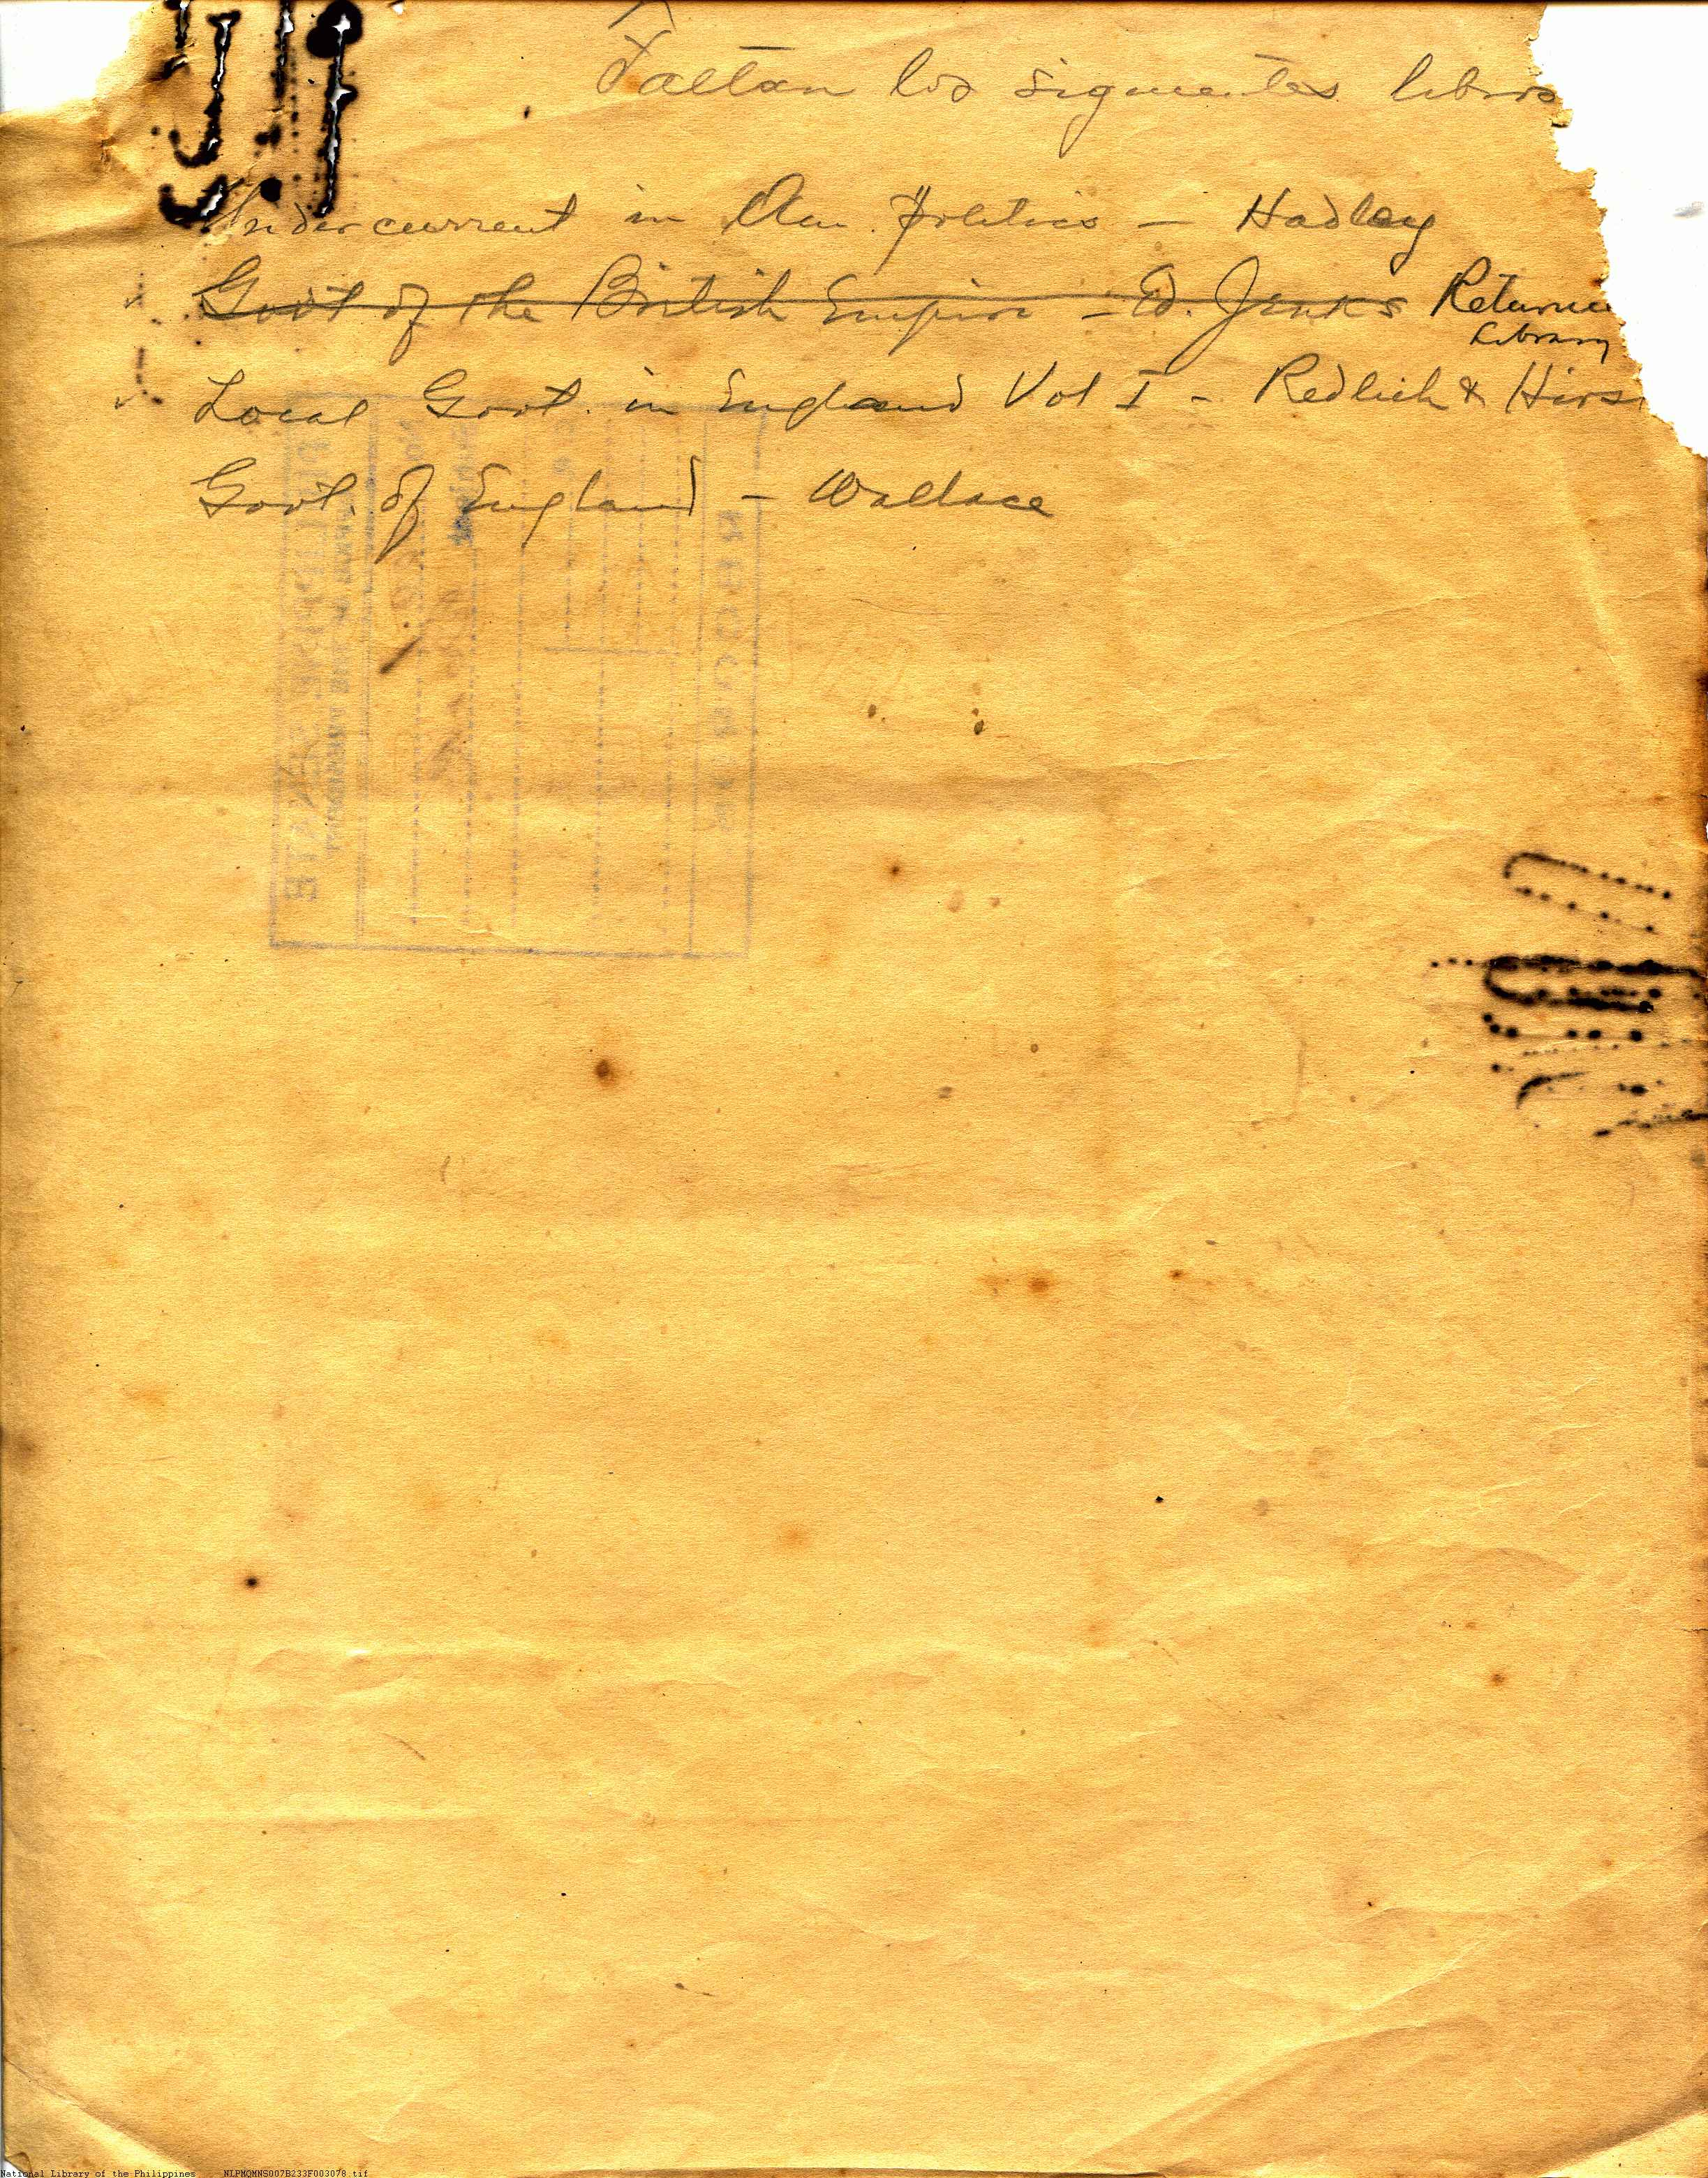 Faltan los siguientes libros
Undercurrent in Am. Politics - Hadley
Govt of the British Empire - Ed. Jenks Returne
Library
Local Govt. in England Vol I - Redlich & Hirs
Govt. of England - Wallace
PHILIPPINE SENATE
RECORDS
National Library of the Philippines NLPMQMNS007B233F003078.tif